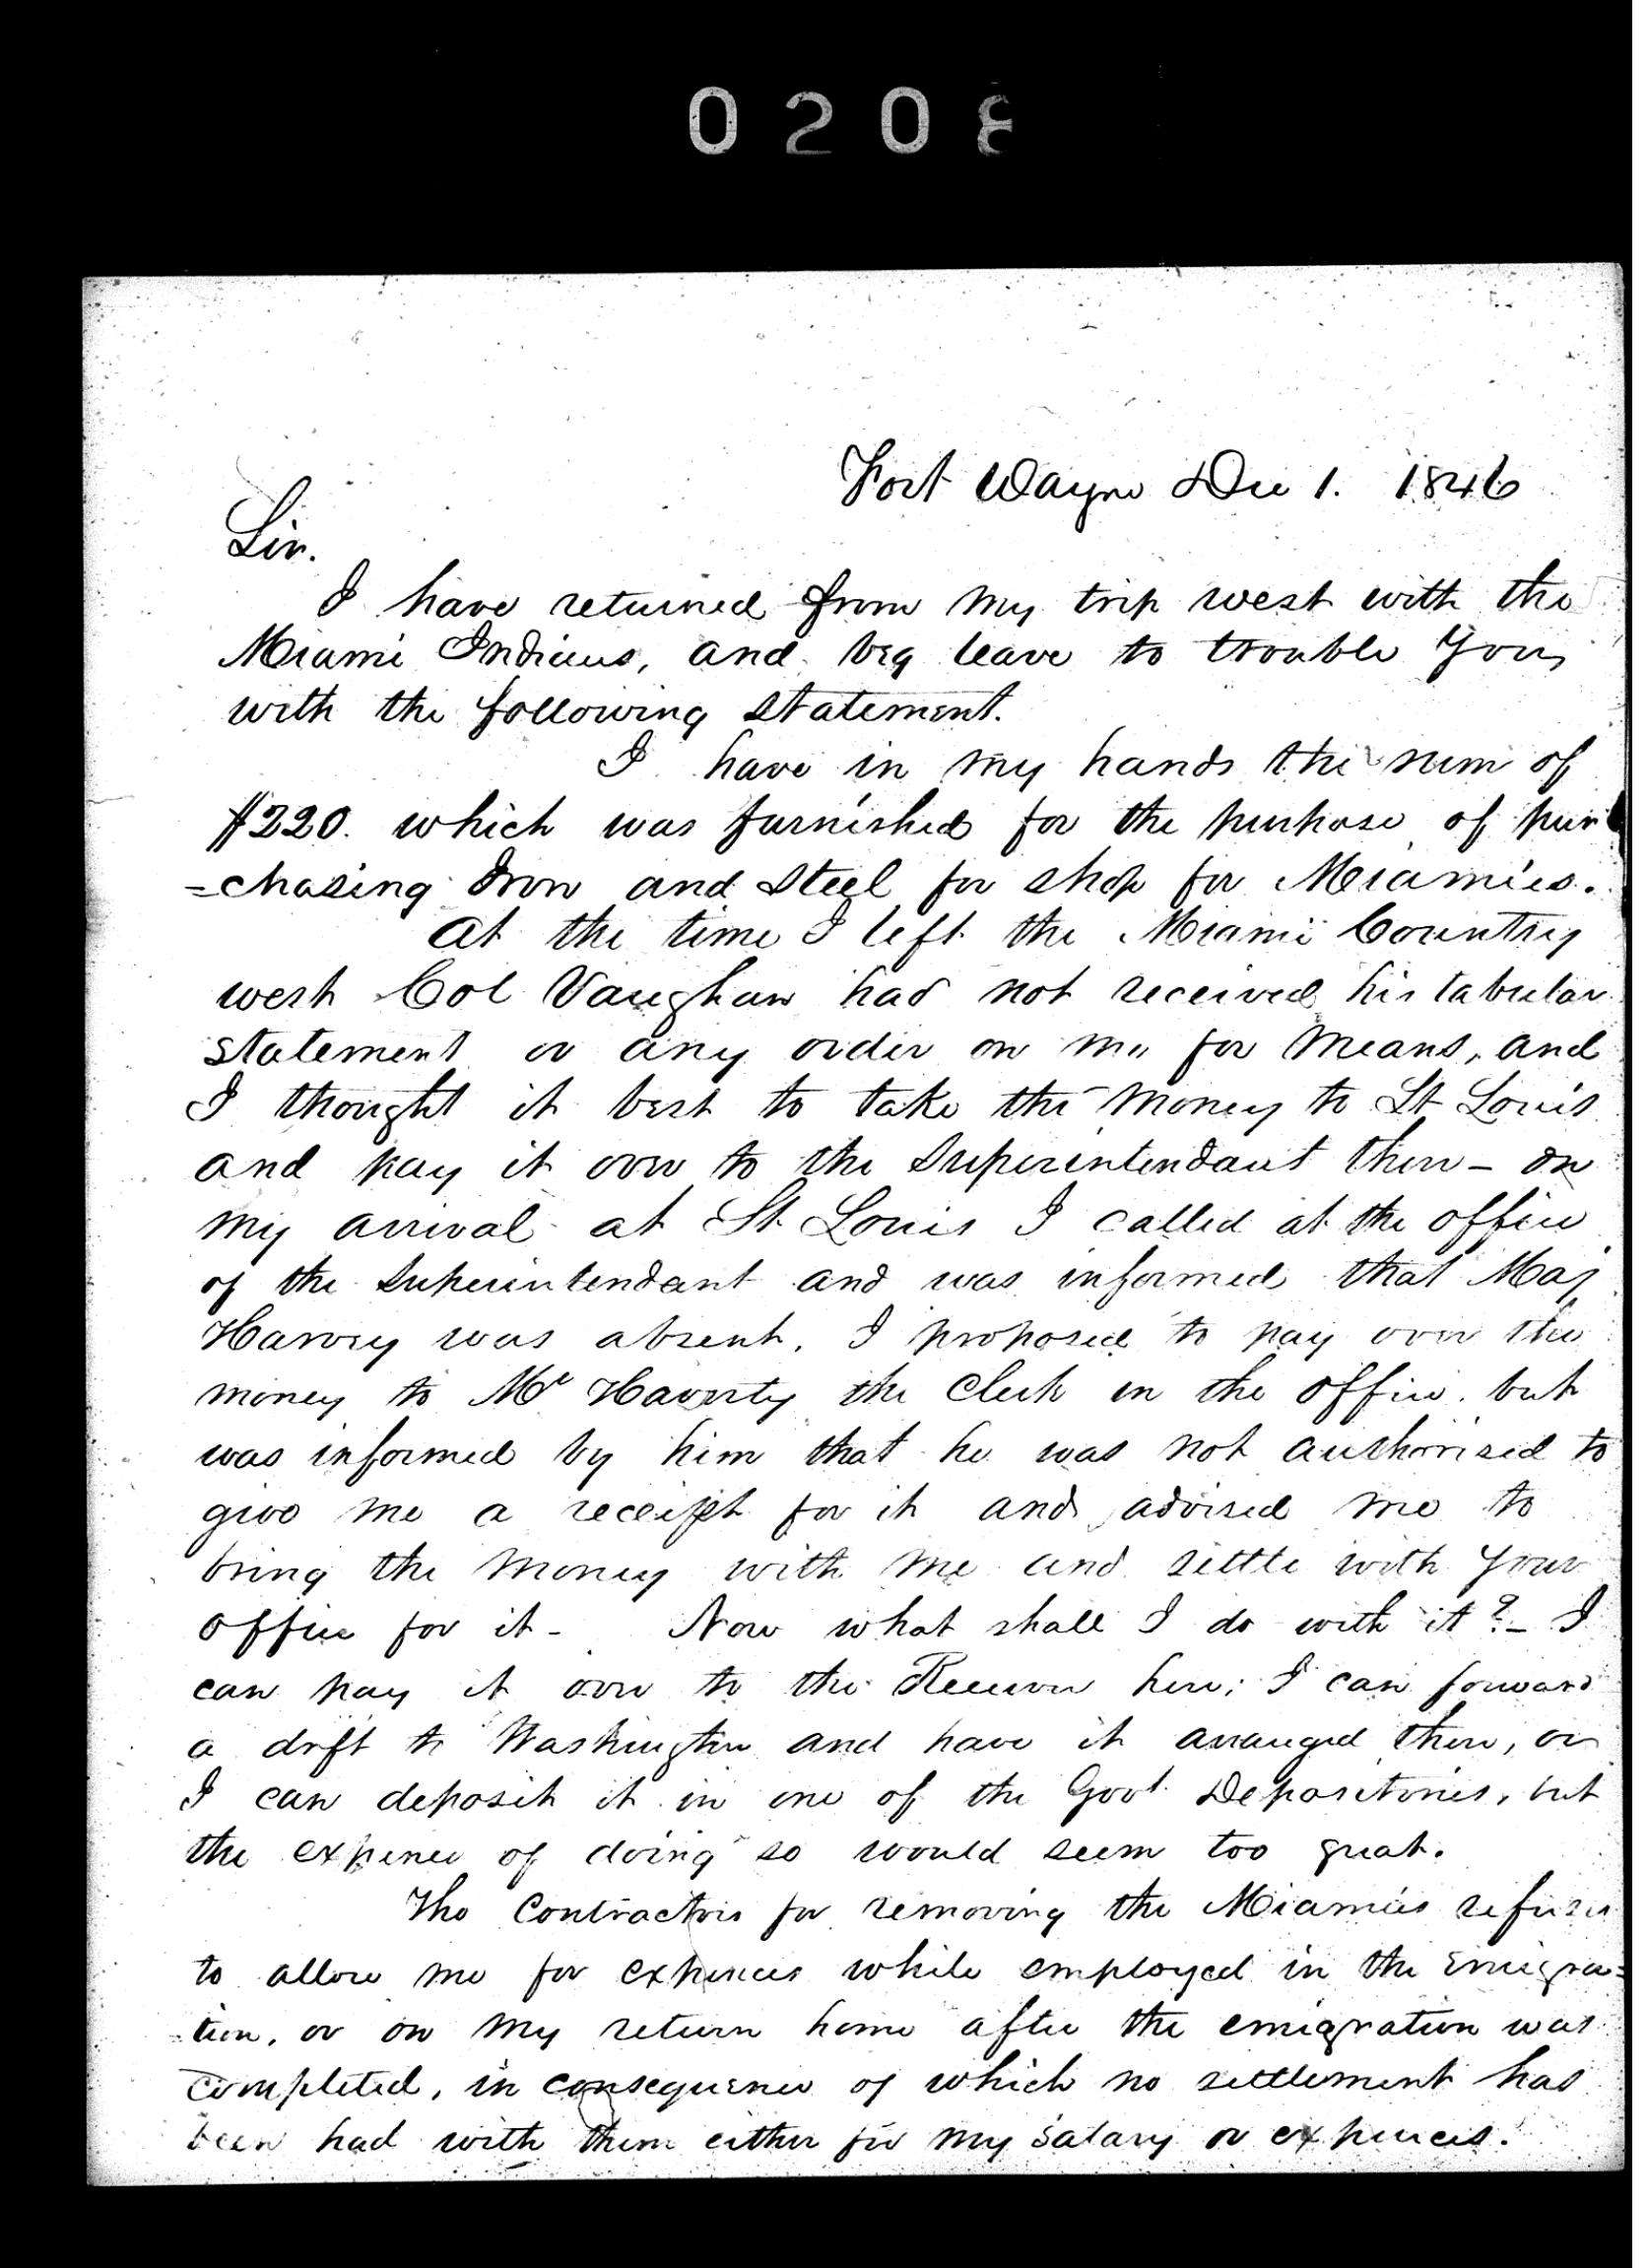 0208
Fort Wayne Dec 1. 1846
Sir.
I have returned from my trip west with the
Miami Indians, and beg leave to trouble You
with the following statement.
I have in my hands the sum of
$220. which was furnished for the purpose of pur
=chasing Iron and Steel for shop for Miamies.
At the time I left the Miami Country
west Col Vaughan had not received his tabular
statement or any order on me for means, and
I thought it best to take the money to St Louis
and pay it over to the Superintendant there – on
my arrival at St Louis I called at the office
of the Superintendant and was informed that Maj
Harvey was absent. I proposed to pay over the
money to Mr Haverty the Clerk in the office. but
was informed by him that he was not authorised to
give me a receipt for it and advised me to
bring the money with me and settle with Your
office for it – Now what shall I do with it? – I
can pay it over to the Receiver here; I can forward
a drft to Washington and have it arranged there, or
I can deposit it in one of the Govt Depositories, but
the expence of doing so would seem too great.
The Contractors for removing the Miamies refuse
to allow me for expences while employed in the emigra=
=tion, or on my return home after the emigration was
completed, in consequence of which no settlement has
been had with them either for my salary or expences.